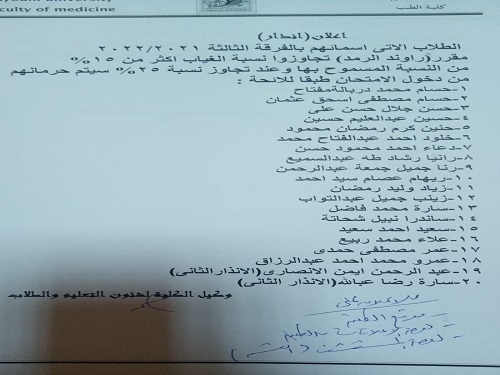 كلية الطب
culty of medicine
إعلان (إنذار)
الطلاب الاتى اسمائهم بالفرقة الثالثة ٢٠٢٢/٢٠٢١
مقرر(راوند الرمد) تجاوزوا نسبة الغياب اكثر من ١٥%
من النسبة المسموح بها وعند تجاوز نسبة ٢٥% سيتم حرمانهم
من دخول الامتحان طبقا للائحة :
١-حسام محمد دربالةمفتاح
٢-حسام مصطفى اسحق عثمان
٣-حسن جلال حسن على
٤-حسين عبدالعليم حسين
٥-حنين كرم رمضان محمود
٦-خلود احمد عبدالفتاح محمد
٧-دعاء احمد محمود حسن
٨-رانيا رشاد طه عبدالسميع
٩-رنا جميل جمعة عبدالرحمن
١٠-ريهام عصام سيد احمد
١١-زياد وليد رمضان
١٢-زينب جميل عبدالتواب
١٣-سارة محمد فاضل
١٤-ساندرا نبيل شحاتة
١٥-سعيد احمد سعيد
١٦-علاء محمد ربيع
١٧-عمر مصطفى حمدى
١٨-عمرو محمد احمد عبدالرزاق
١٩-عبد الرحمن ايمن الانصارى(الانذارالثانى)
٢٠-سارة رضا عبدالله(الانذار الثانى)
وكيل الكلية لشئون التعليم والطلاب